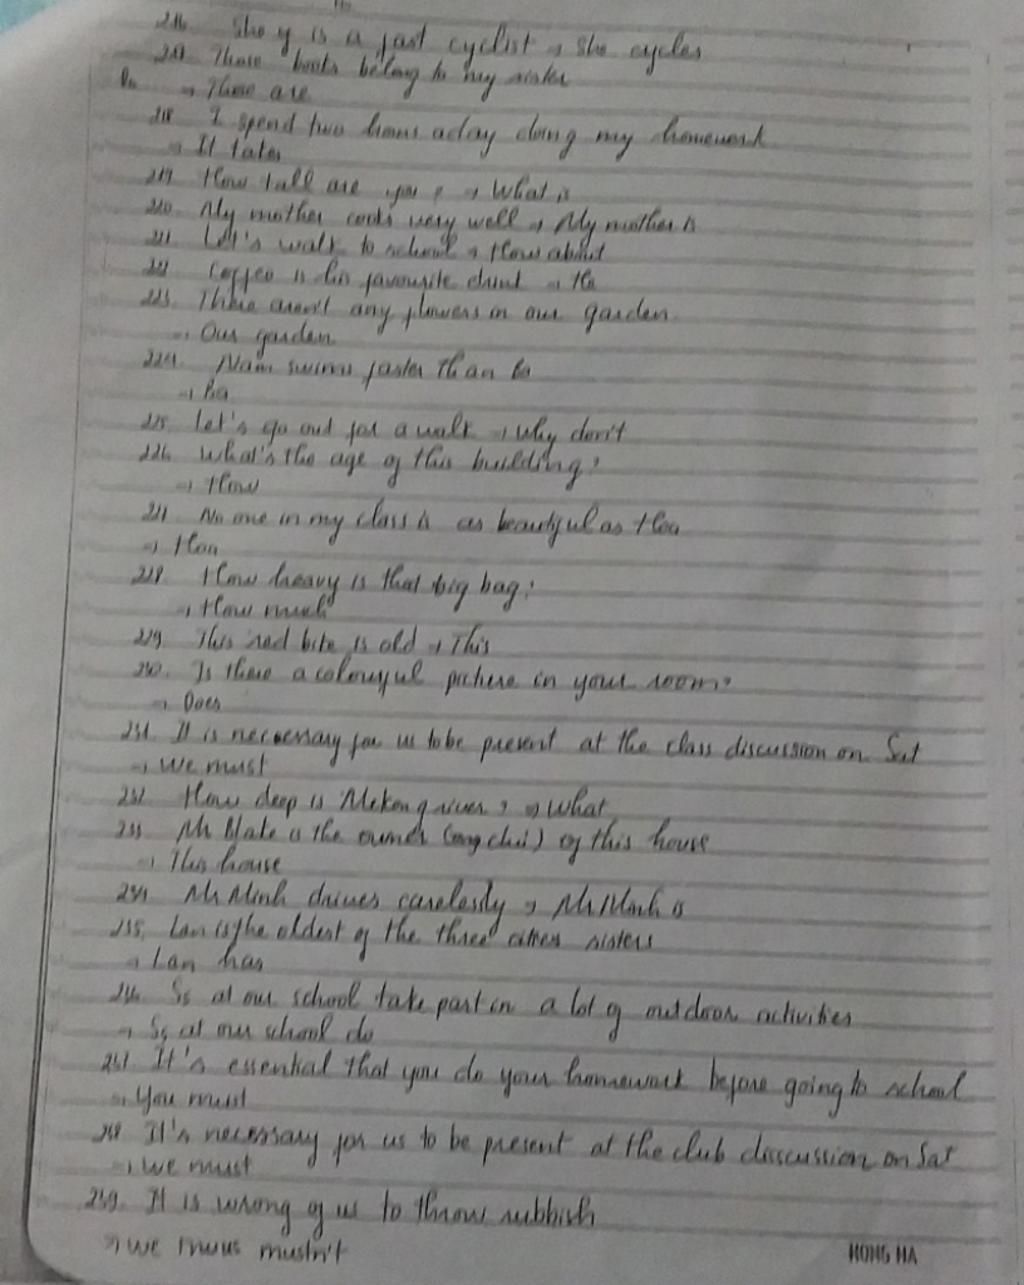 216. She y is a fast cyclist → she cycles
217. These books belong to my sister
→ These are
218. I spend two hours a day doing my homework
→ It takes
219. How tall are you? → What is
220. My mother cooks very well → My mother is
221. Let's walk to school → How about
222. Coffee is his favourite drink → He
223. There aren't any flowers in our garden
→ Our garden
224. Nam swims faster than Ba
→ Ba
225. Let's go out for a walk → Why don't
226. What's the age of this building?
→ How
227. No one in my class is as beautiful as Hoa
→ Hoa
228. How heavy is that big bag?
→ How much
229. This red bike is old → This
230. Is there a colourful picture in your room?
→ Does
231. It is necessary for us to be present at the class discussion on Sat
→ We must
232. How deep is Mekong river? → What
233. Mr Blake is the owner (ông chủ) of this house
→ This house
234. Mr Minh drives carelessly → Mr Minh is
235. Lan is the oldest of the three sisters
→ Lan has
236. Ss at our school take part in a lot of outdoor activities
→ Ss at our school do
237. It's essential that you do your homework before going to school
→ You must
238. It's necessary for us to be present at the club disscussion on Sat
→ We must
239. It is wrong of us to throw rubbish
→ We mustn't
HONG HA